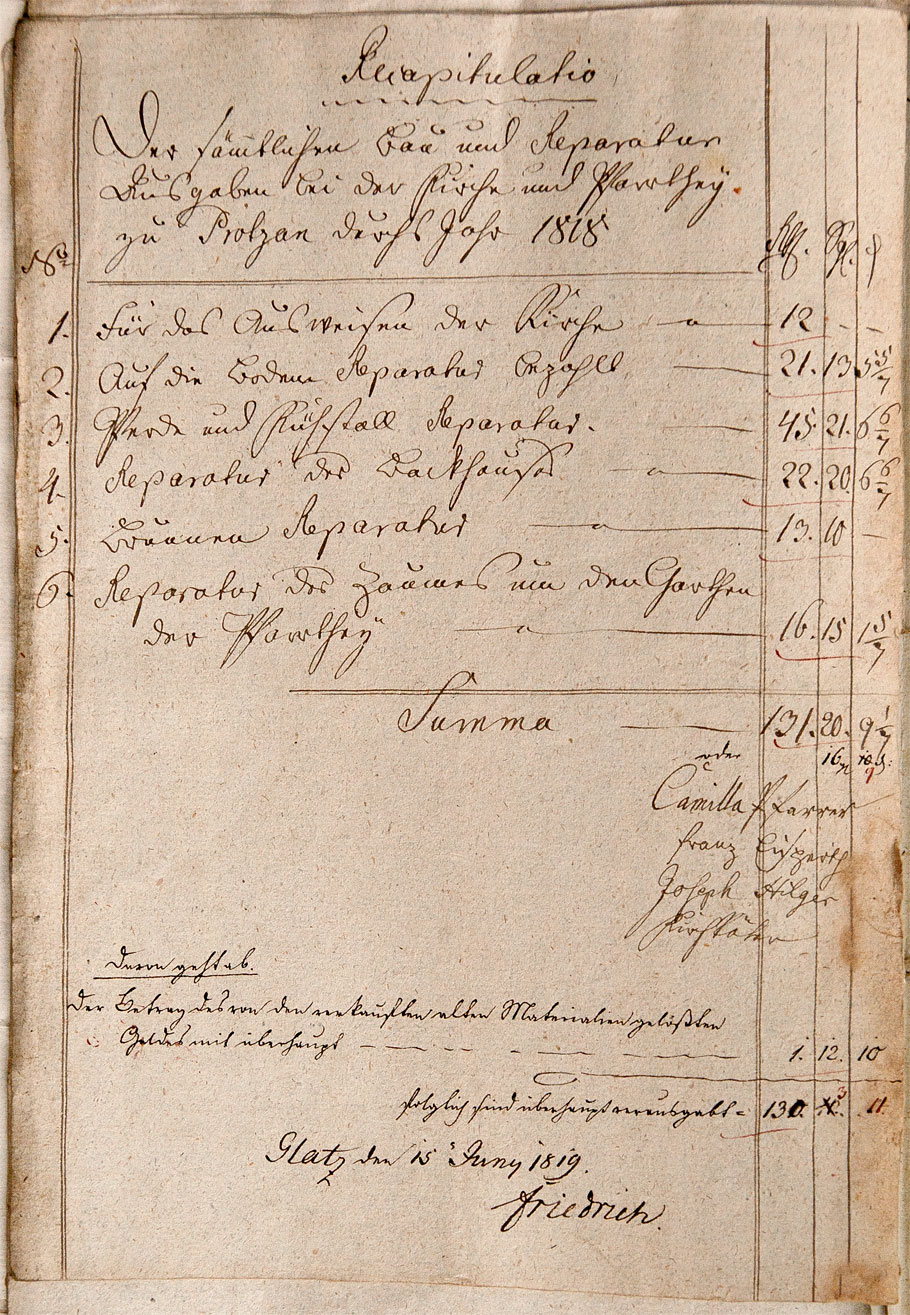 Recapitulatio
Der sämtlichen Bau und Reparatur
Ausgaben bei der Kirche und Pfarrthey
zu Protzan durchs Jahr 1818
No Rtl. Sgl. d
1. Für das Ausweisen der Kirche 12 - -
2. Auf die Bodem Reparatur bezahlt 21. 13. 5 5/7
3. Pferde und Kühstall Reparatur. 45. 21. 6 6/7
4. Reparatur des Backhauses 22. 20. 6 6/7
5. Brunnen Reparatur 13. 10 -
6. Reparatur des Zaumes um den Garthen
der Pfarrthey 16. 15 1 5/7
Summa 131. 20. 9 1/7
oder 16
Camilla Pfarrer
Franz
Joseph Hilger
Kirchväter
Davon geht ab.
Der Betrag des von den verkauften alten Materialien gelößten
Geldes mit überhaupt 1. 12. 10
folglich sind überhaupt verausgabt = 130. 3 11.
Glatz den 15 Juny 1819.
Friedrich.